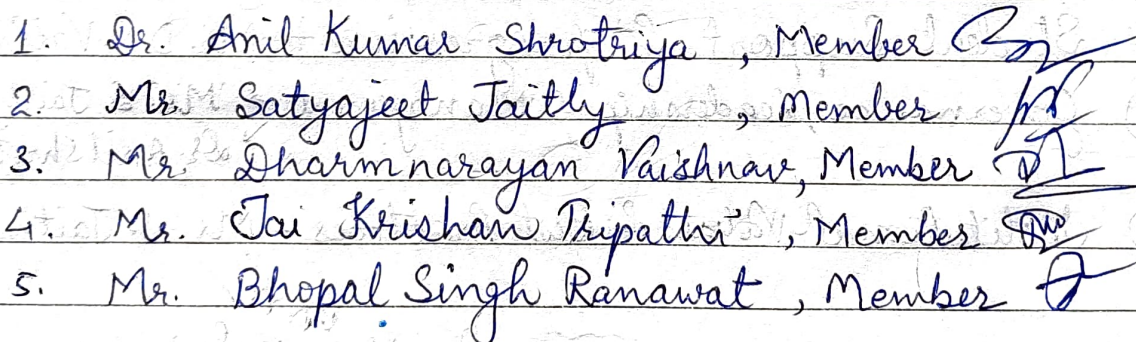 1. Dr. Anil Kumar Shrotriya, Member
2. Mr. Satyajeet Jaitly, Member
3. Mr. Dharmnarayan Vaishnav, Member
4. Mr. Jai Krishan Tripathi, Member
5. Mr. Bhopal Singh Ranawat, Member